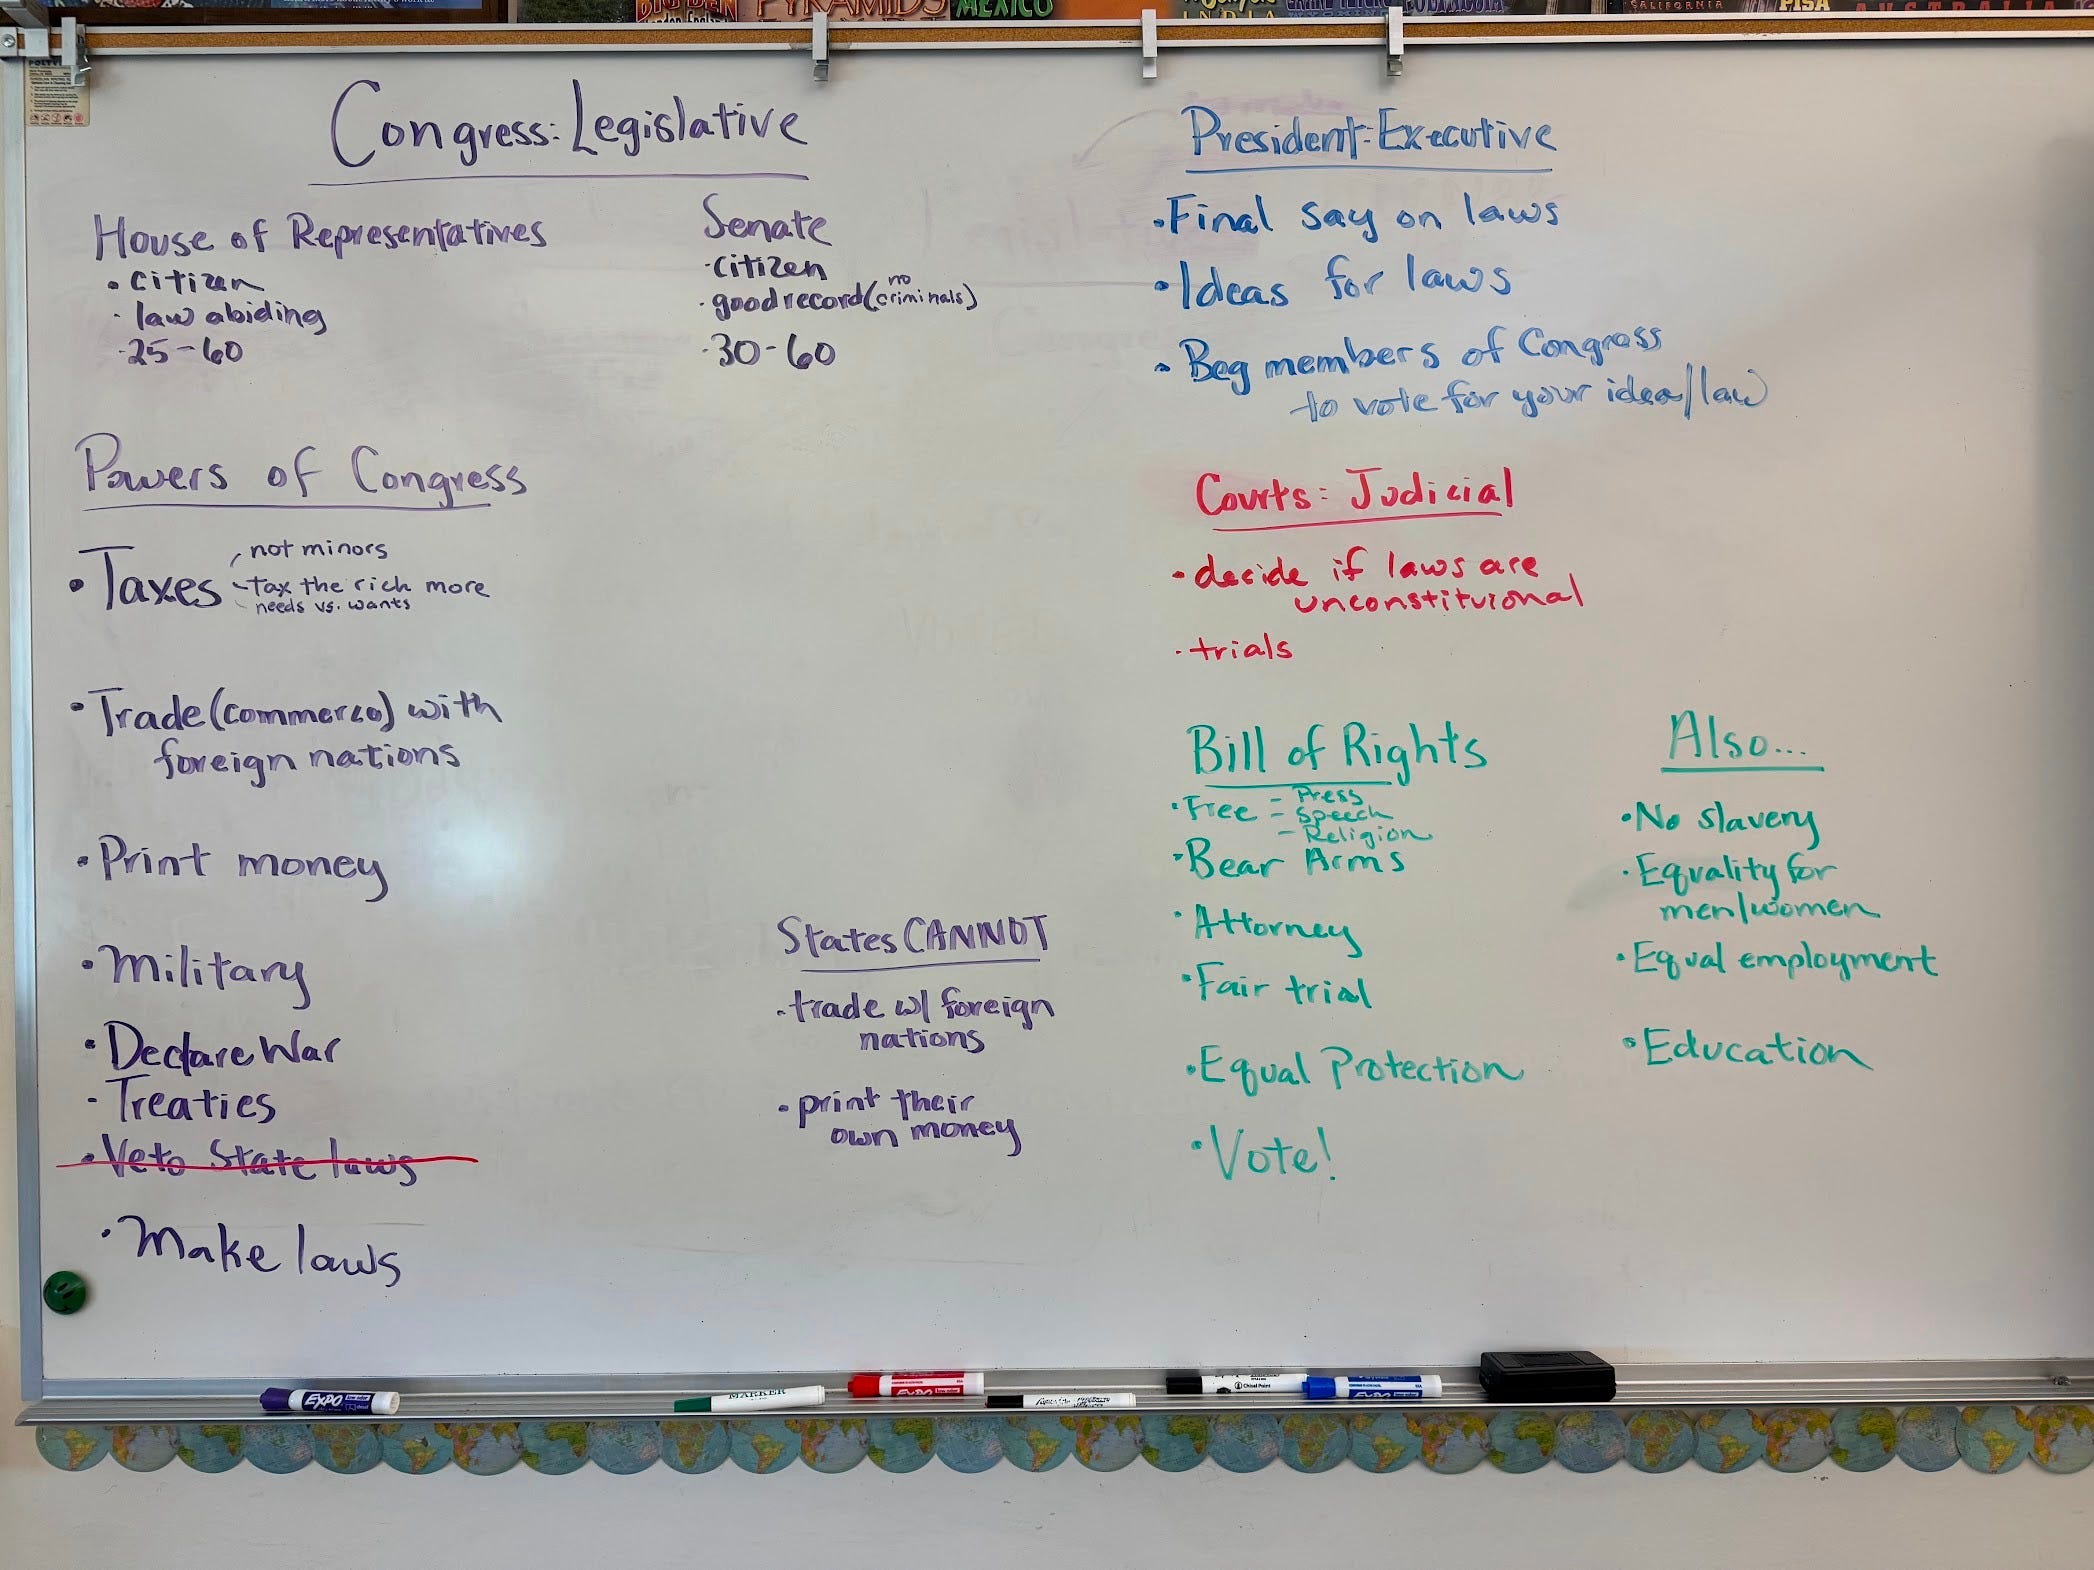 PYRAMIDS
MEXICO
INDIA
CALIFORNIA
PISA
AUSTRALIA
Congress: Legislative
House of Representatives
• citizen
• law abiding
• 25-60
Senate
• citizen
• good record (no criminals)
• 30-60
Powers of Congress
• Taxes - not minors
- tax the rich more
- needs vs. wants
• Trade (commerce) with
foreign nations
• Print money
• Military
• Declare War
- Treaties
• Veto State laws
• Make laws
States CANNOT
• trade w/ foreign
nations
• print their
own money
President: Executive
• Final say on laws
• Ideas for laws
• Beg members of Congress
to vote for your idea/law
Courts: Judicial
• decide if laws are
unconstitutional
• trials
Bill of Rights
• Free = Press
- Speech
- Religion
• Bear Arms
• Attorney
• Fair trial
• Equal Protection
• Vote!
Also...
• No slavery
• Equality for
men/women
• Equal employment
• Education
EXPO
MARKER
EXPO
Chisel Point
EXPO